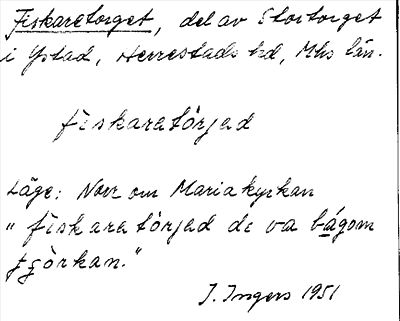 Fiskaretorget, del av Stortorget
i Ystad, Herrestads hd, Mhs län.
fiskaretòrjad
Läge: Norr om Mariakyrkan
"fiskaretòrjad de va bágom
tʃòrkan."
I. Ingers 1951